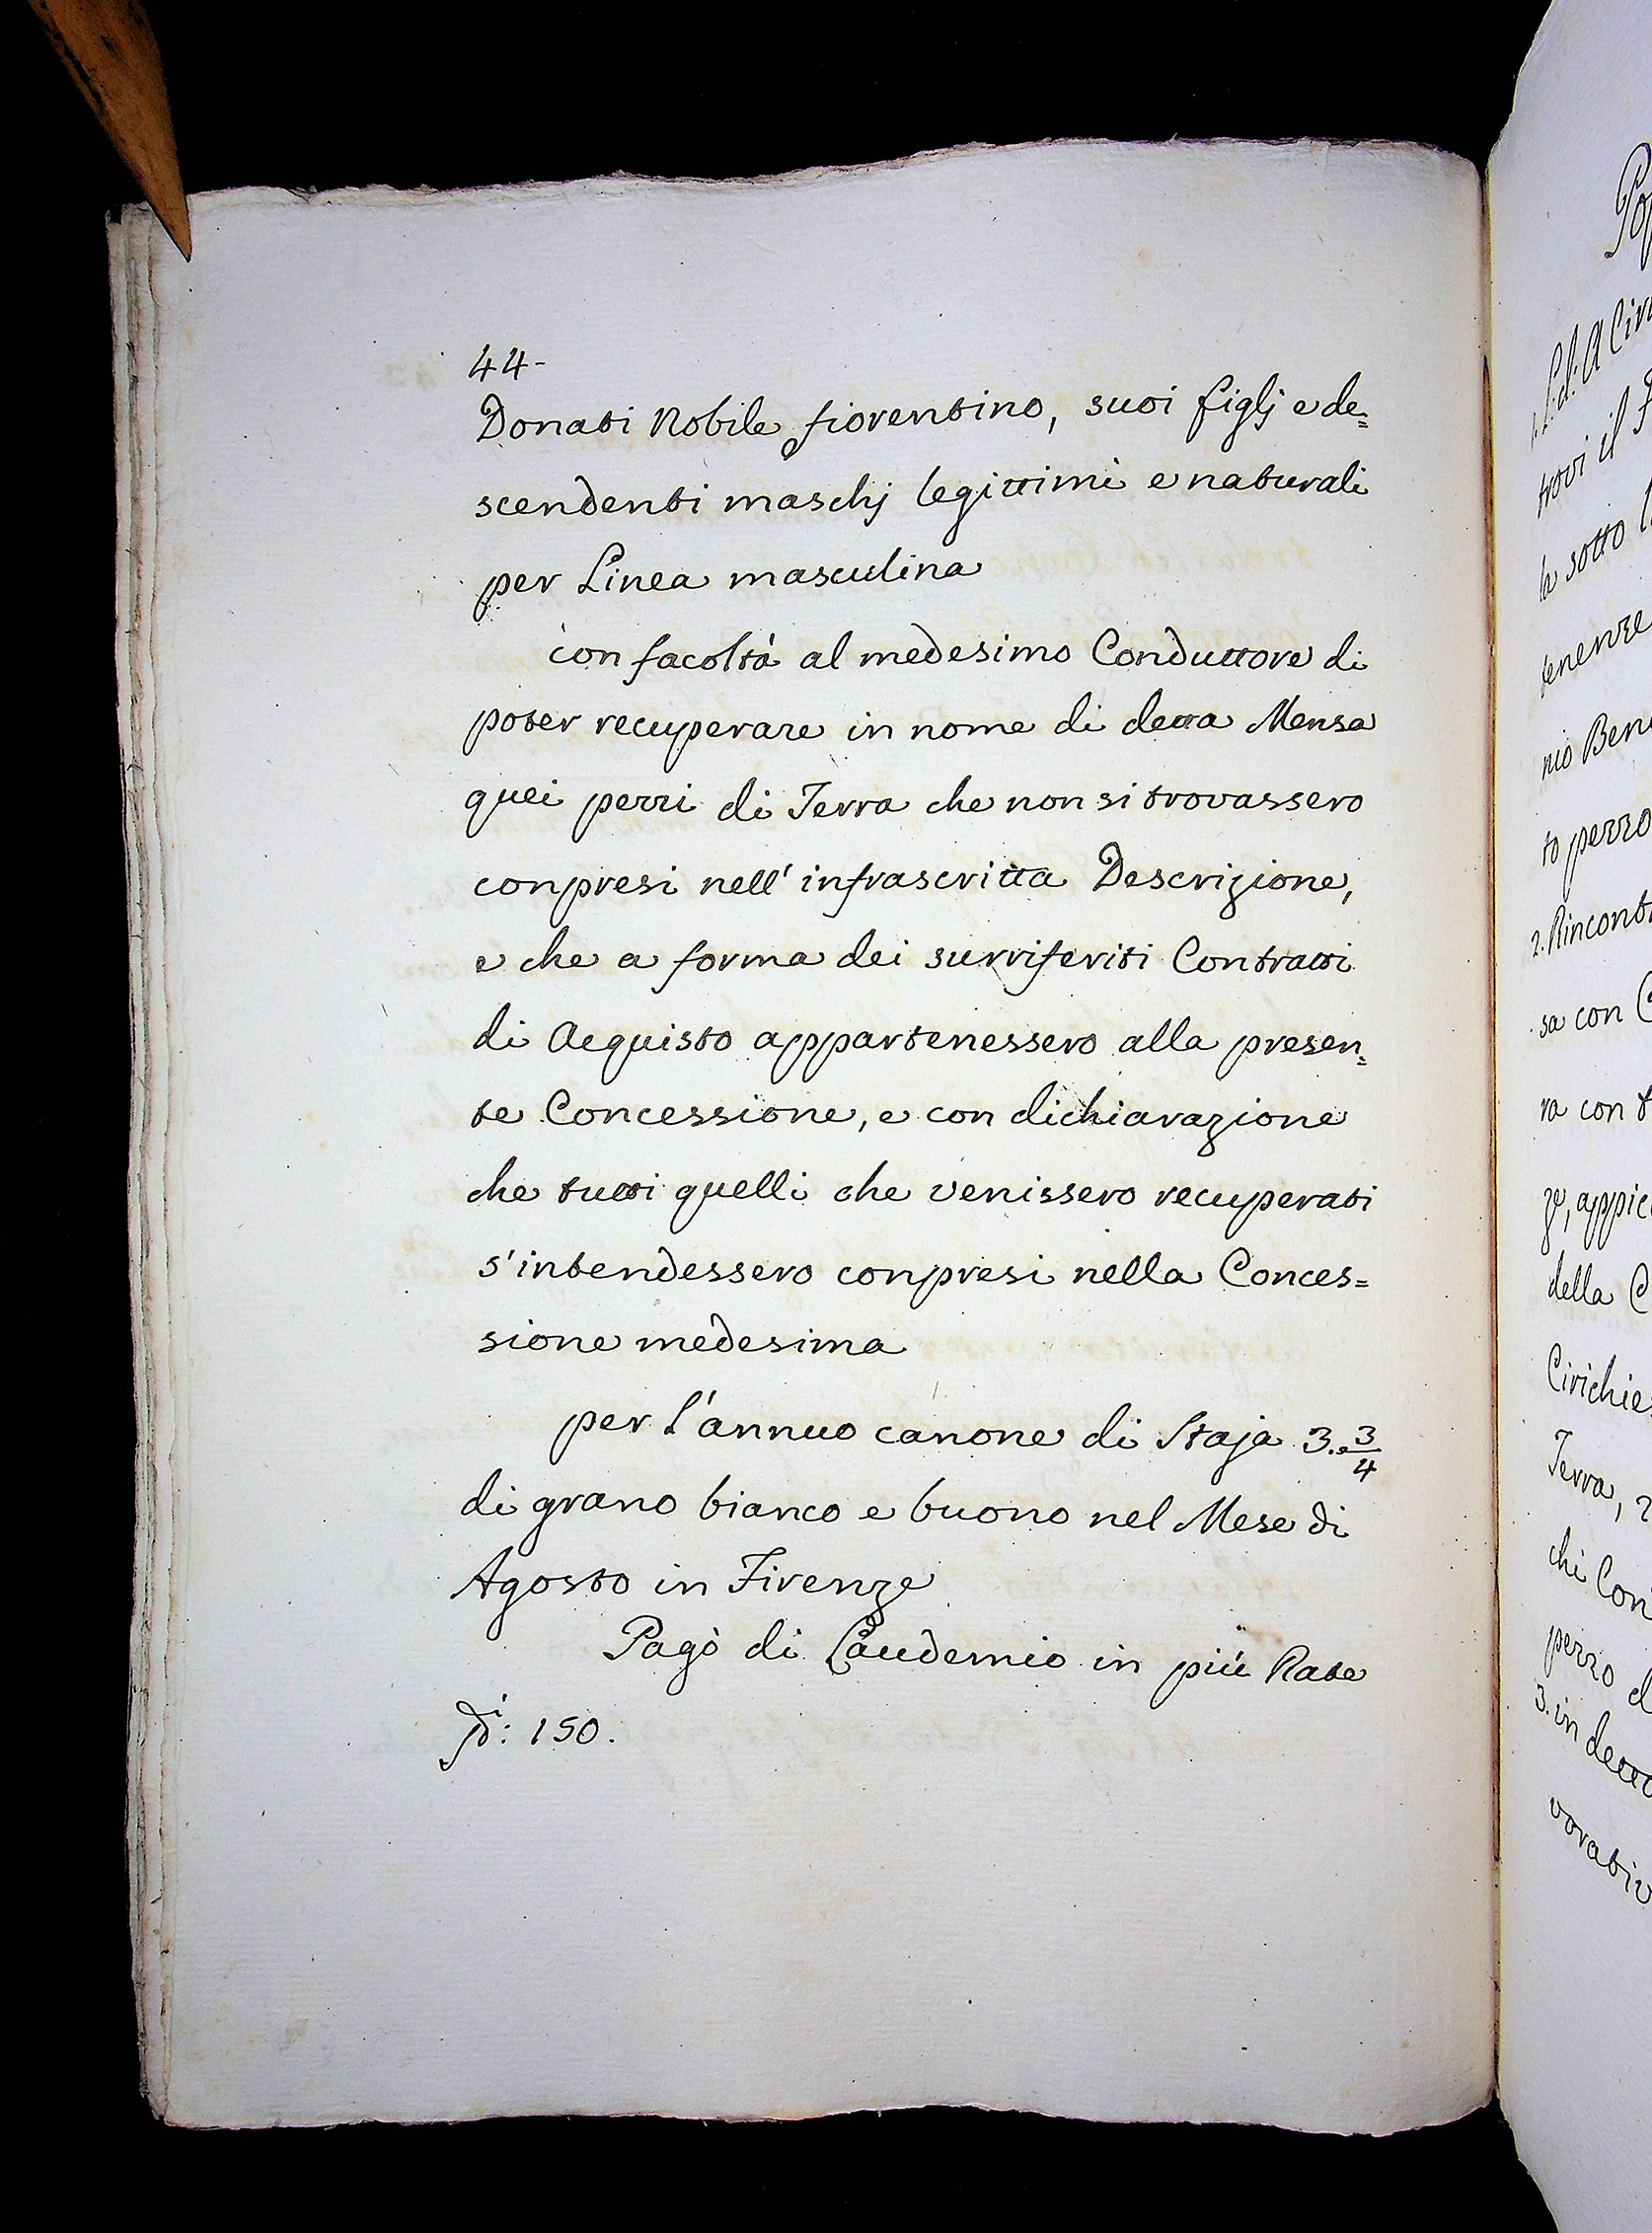 44-
Donati Nobile fiorentino, suoi figlj e de=
scendenti maschj legittimi e naturali
per Linea masculina
con facoltà al medesimo Conduttore di
poter recuperare in nome di detta Mensa
quei pezzi di Terra che non si trovassero
conpresi nell' infrascritta Descrizione,
e che a forma dei surriferiti Contratti
di Acquisto appartenessero alla presen=
te Concessione, e con dichiarazione
che tutti quelli che venissero recuperati
s'intendessero conpresi nella Conces=
sione medesima
per l'annuo canone di Staja 3. 3/4
di grano bianco e buono nel Mese di
Agosto in Firenze
Pagò di Laudemio in più Rate
150.
1. L: d: A Ciri
trovi il
la sotto
tenenze
nio Ben
to pezzo
2. Rincont
sa con C
ra con t
ze, appic
della C
Cirichie
Terra, 2
chi Con
pezzo d
3. in detto
vorativ